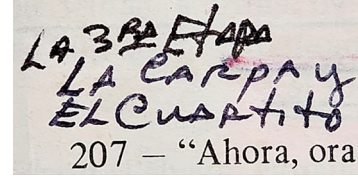 LA 3RA Etapa
LA CARPA y
EL CUARtito
207 – “Ahora, ora